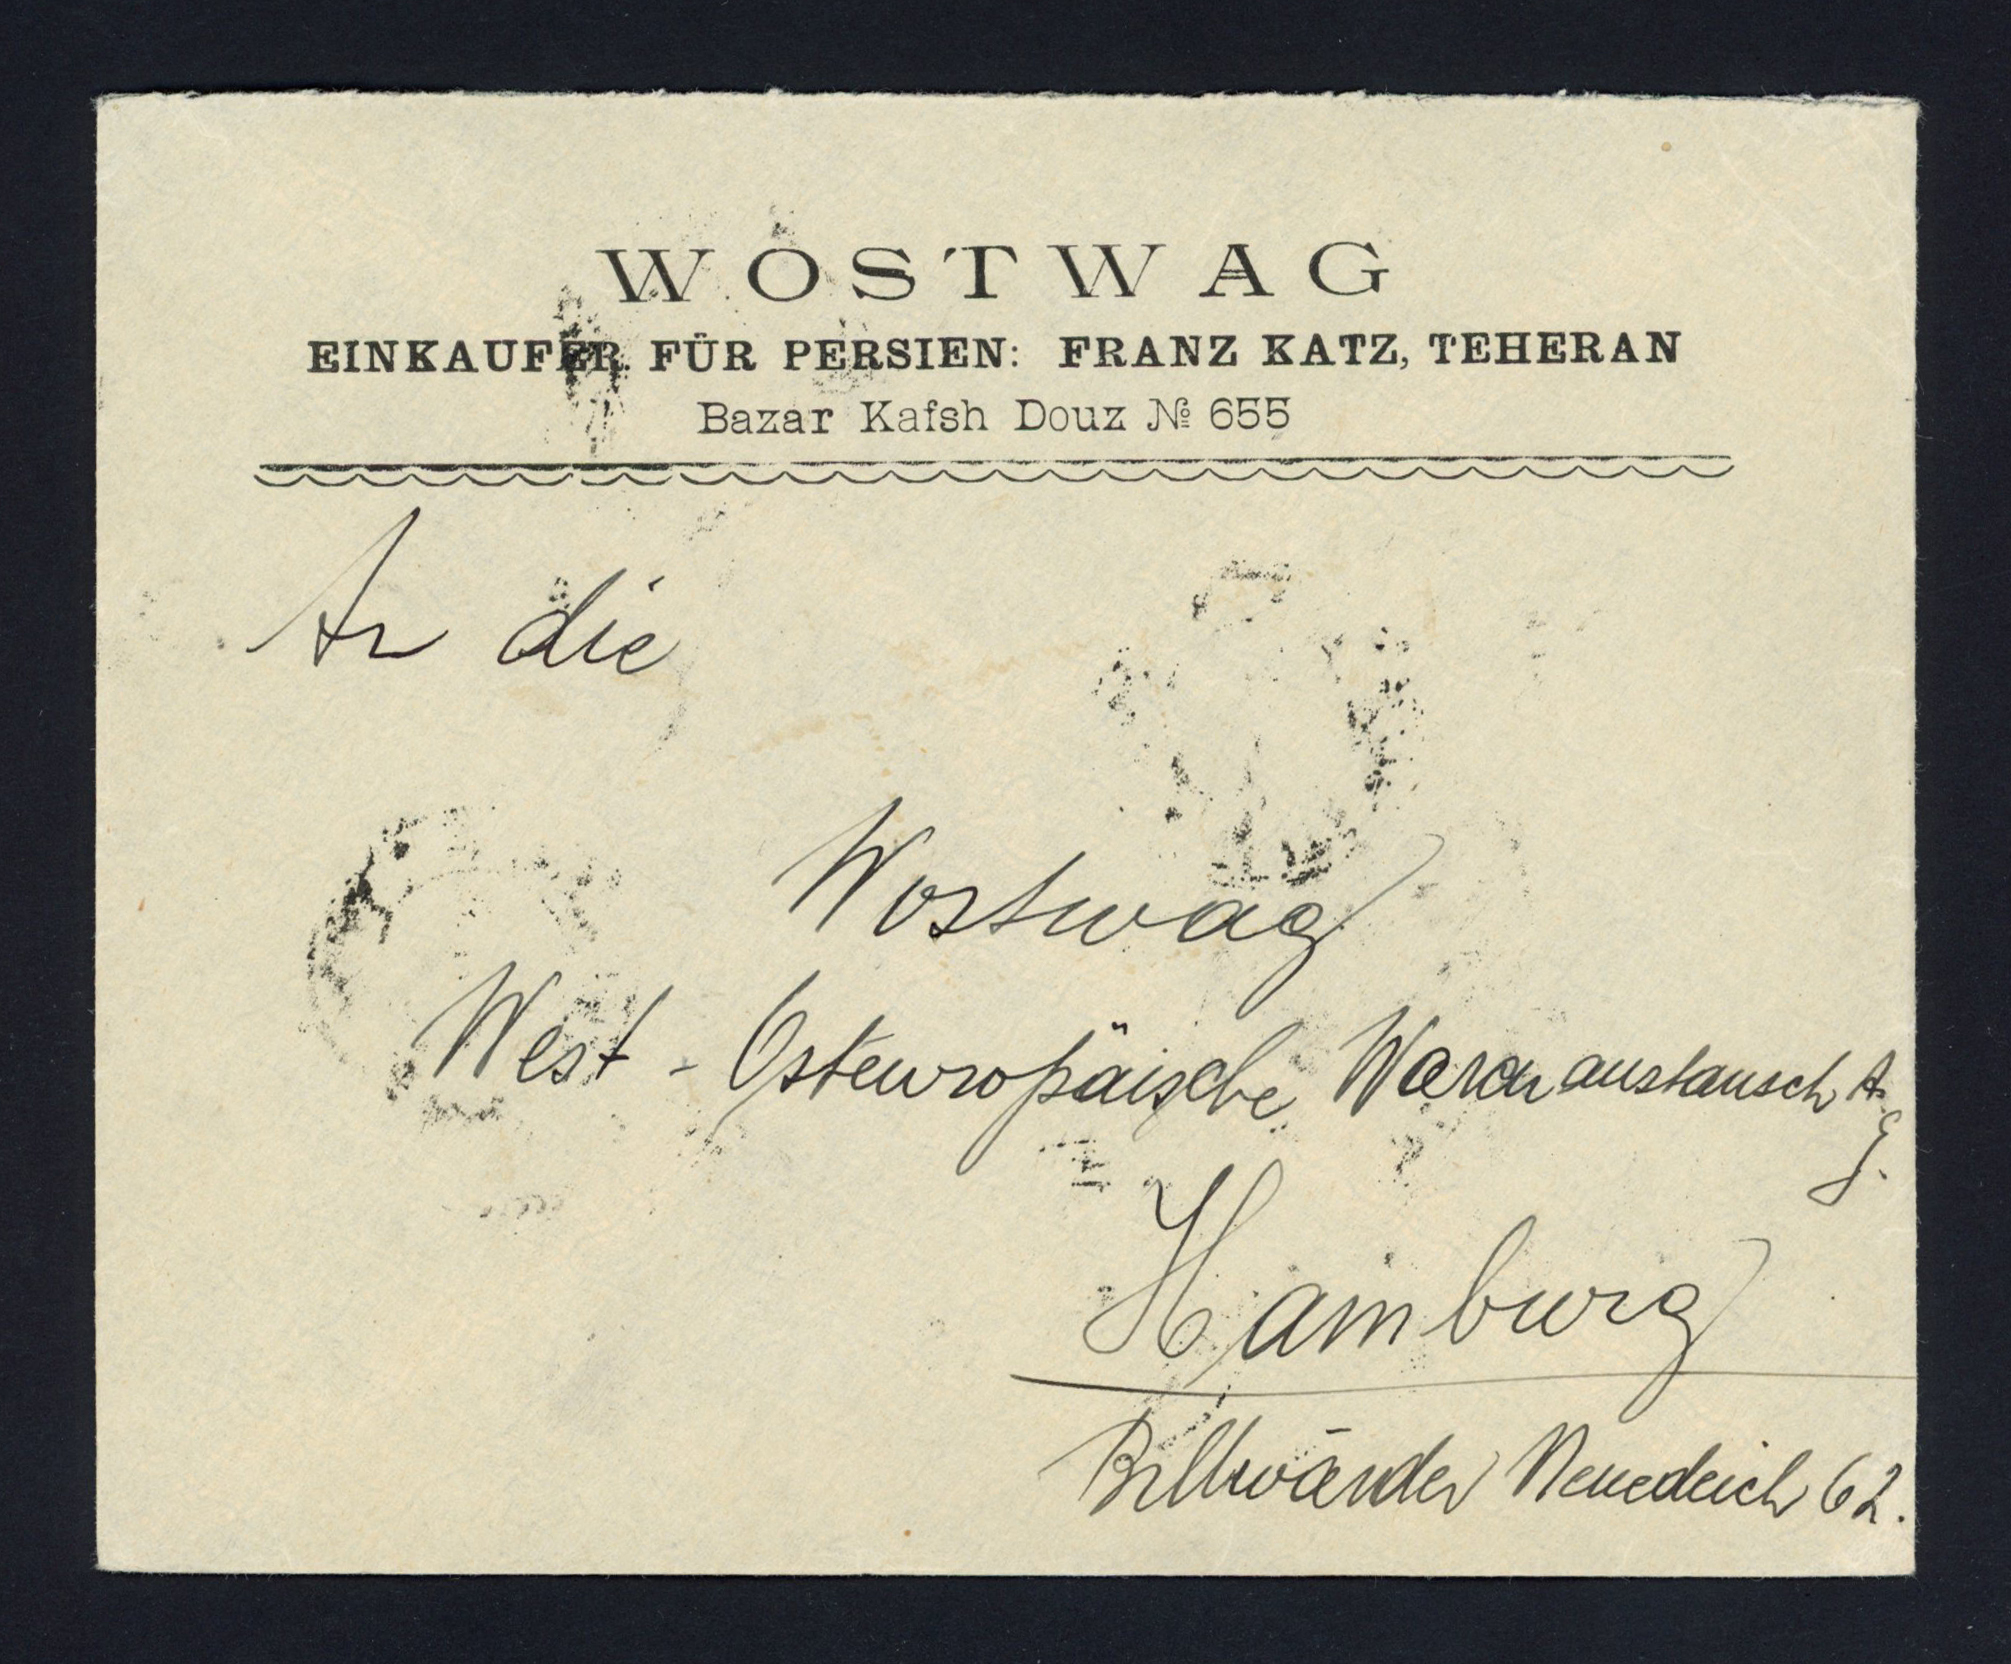 WOSTWAG
EINKAUFER FÜR PERSIEN: FRANZ KATZ, TEHERAN
Bazar Kafsh Douz № 655
An die
Wostwag
West - Osteuropäische Warenaustausch A.
G.
Hamburg
Billwärder Neuedeich 62.